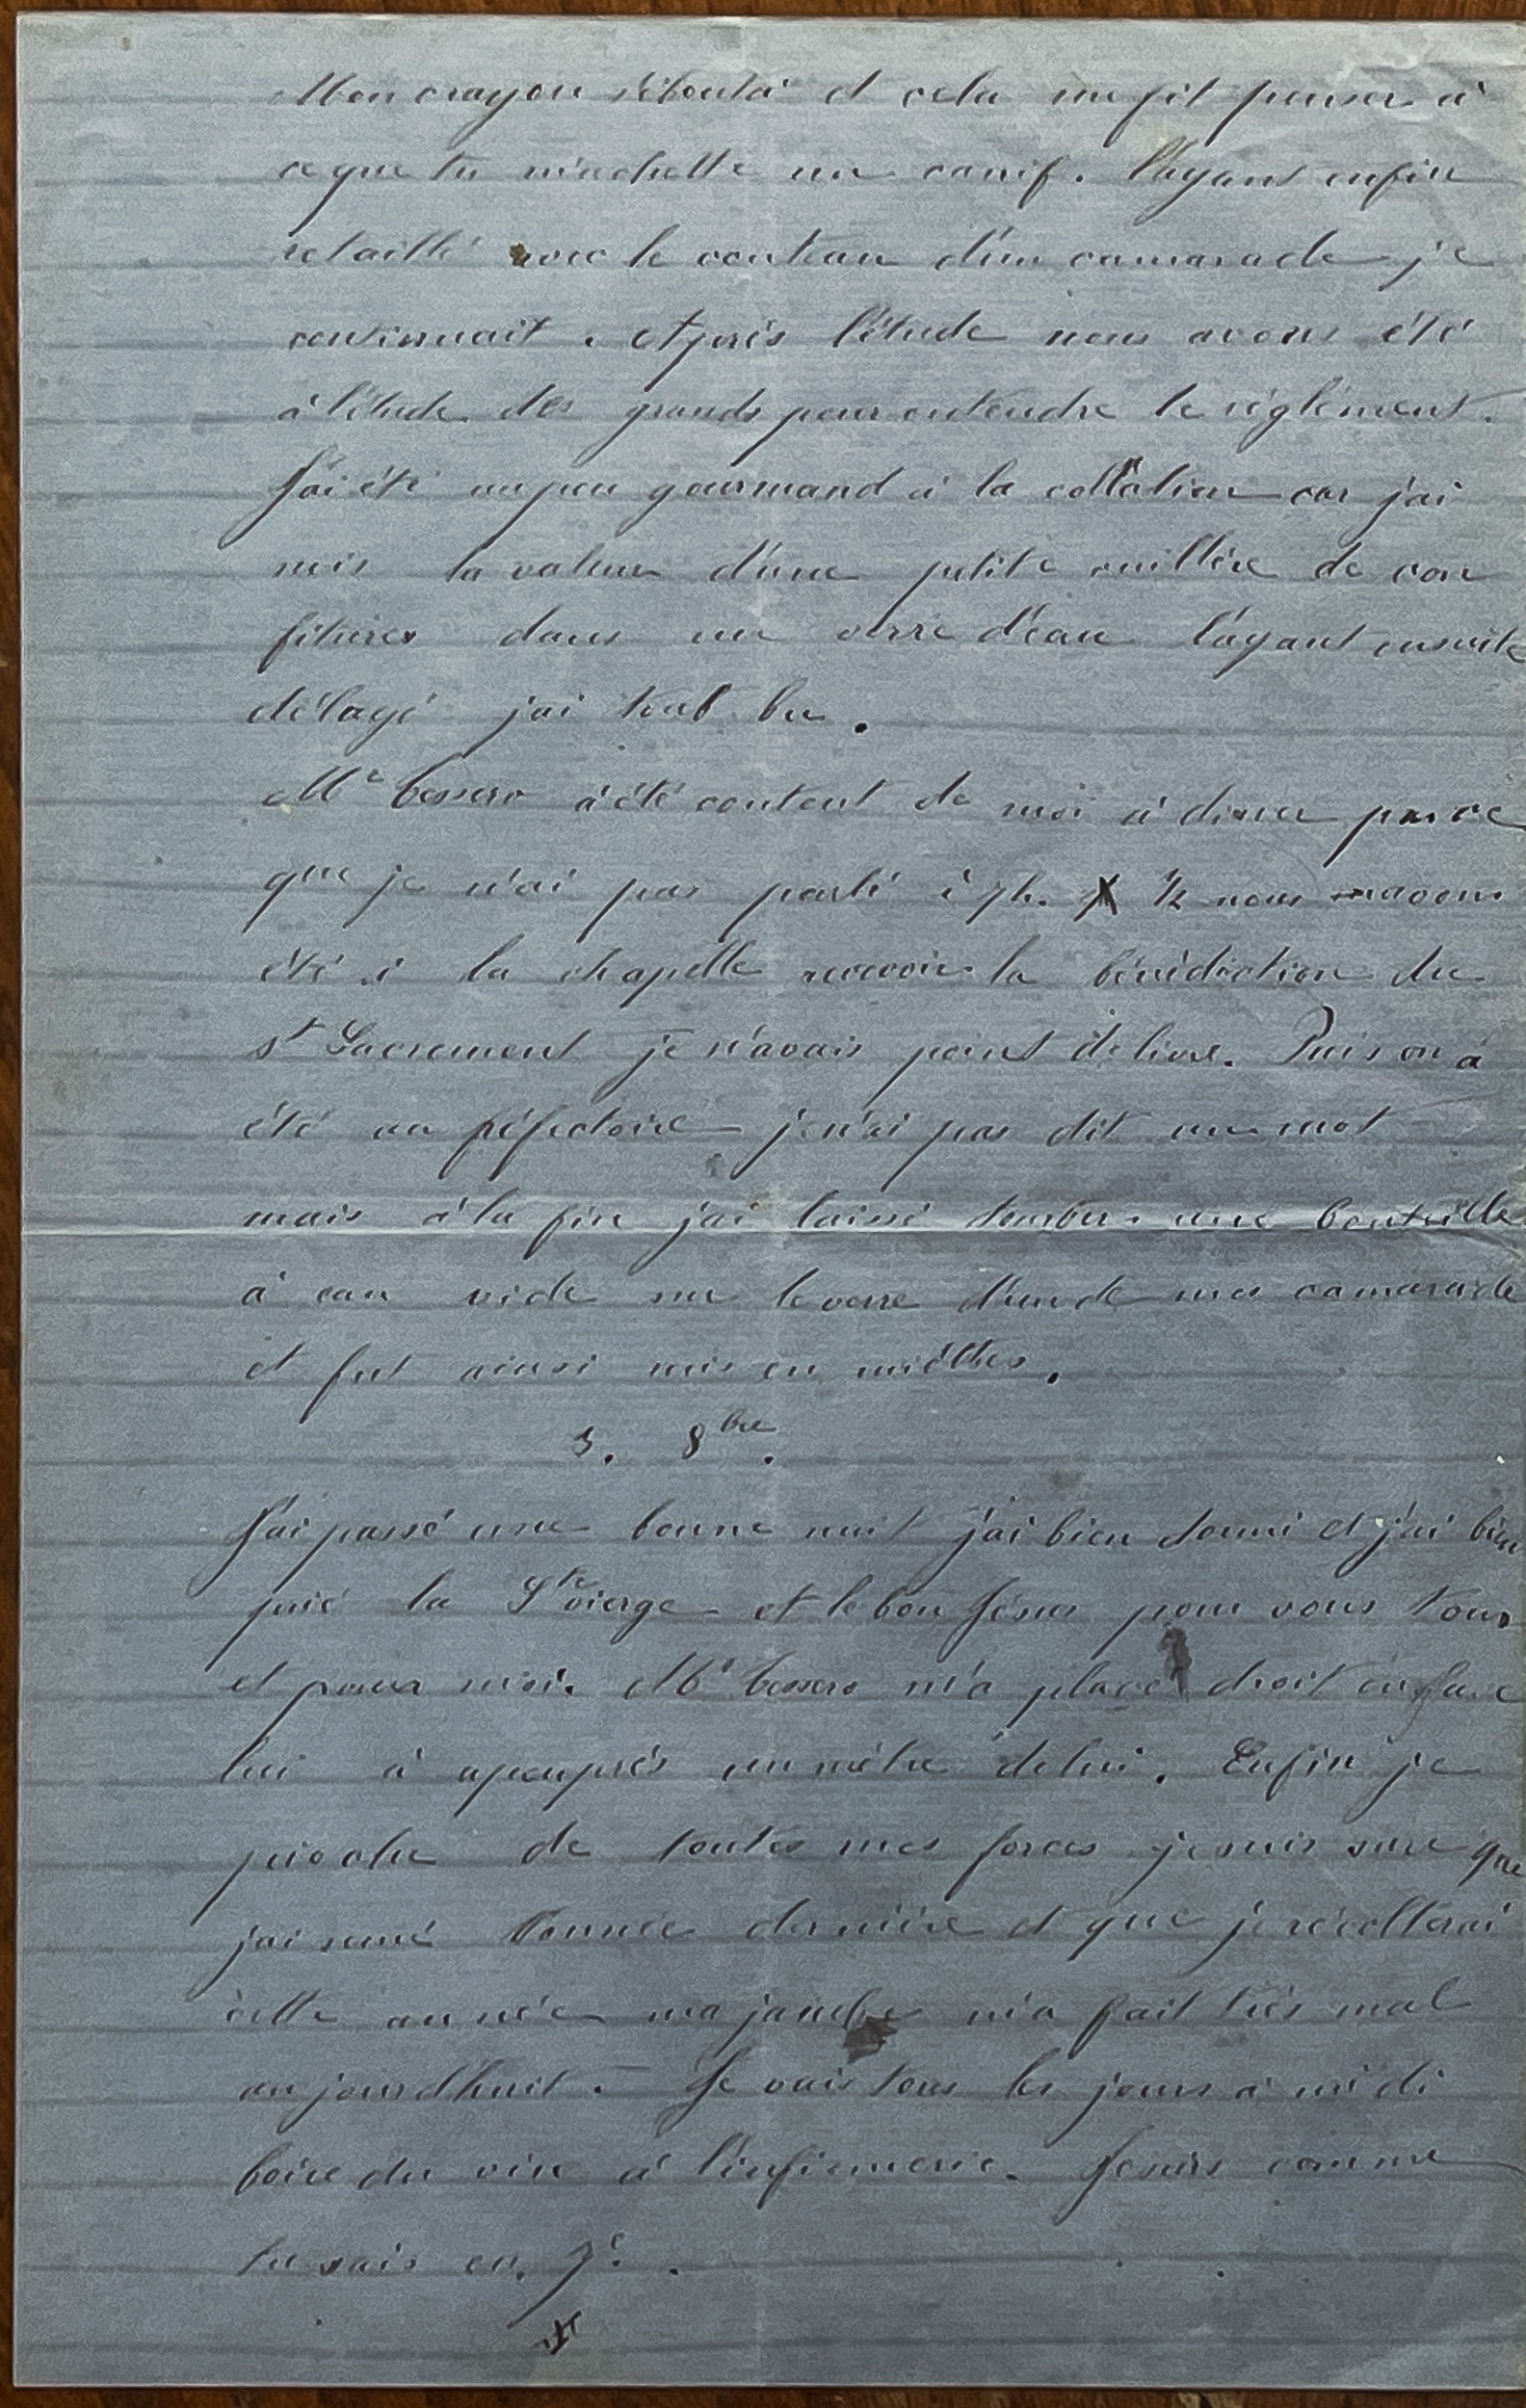 Mon crayon s'ébouta et cela me fit penser à
ce que tu m'achette un canif. l'ayant enfin
retaillé avec le couteau d'un camarade je
continuait. Après l'étude nous avons été
à l'étude des grands pour entendre le réglement.
J'ai été un peu gourmand à la collation car j'ai
mis la valeur d'une petite cuillère de con
fitures dans un verre d'eau l'ayant ensuite
délayé j'ai tout bu.
Mr à été content de moi à diner parce
que je n'ai pas parlé à 7h. ½ nous avons
été à la chapelle recevoir la bénédiction du
St Sacrement je n'avais point de livre. Puis on à
été au réfectoire je n'ai pas dit un mot
mais à la fin j'ai laissé tomber une bouteille
à eau vide sur le verre d'un de mes camarade
et fut ainsi mis en mièttes.
3. 8bre.
J'ai passé une bonne nuit j'ai bien dormi et j'ai bien
prié la Ste vierge et le bon Jésus pour vous tous
et pour moi. Mr m'a placé droit en face
lui à apeuprés un mètre de lui. Enfin je
pioche de toutes mes forces je suis sure que
j'ai semé l'année dernière et que je récolterai
cette année ma jambe m'a fait très mal
aujourd'huit. Je vais tous les jours à midi
boire du vin à l'infirmerie. Je suis comme
tu sais en 7e.